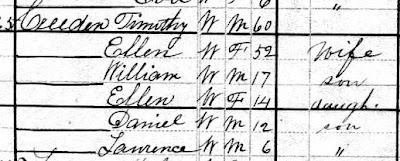 "
Creeden Timothy W M 60
Ellen W F 52 Wife
William W M 17 son
Ellen W F 14 daugh.
Daniel W M 12 son
Lawrence W M 6 "